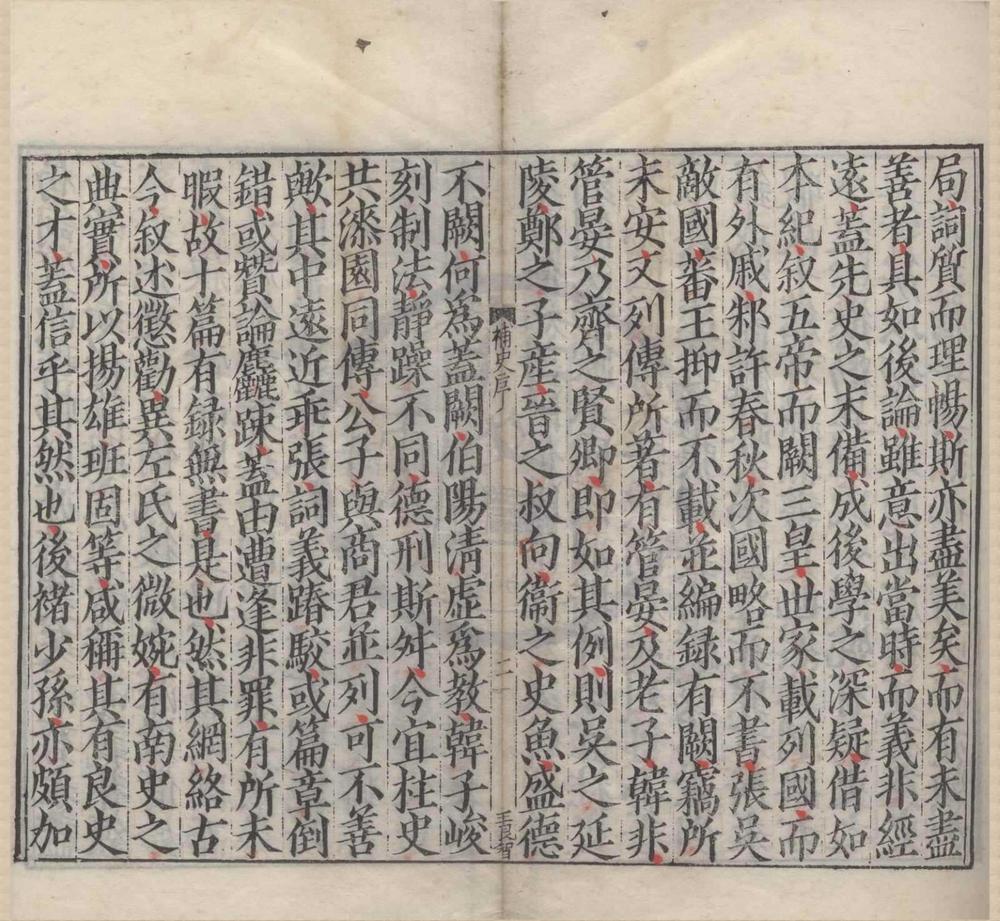 局詞質而理暢斯亦盡美矣而有未盡
善者具如後論雖意出當時而義非經
遠蓋先史之未備成後學之深疑借如
本紀叙五帝而闕三皇世家載列國而
有外戚邾許春秋次國略而不書張吳
敵國蕃王抑而不載並編録有闕竊所
未安又列傳所著有管晏及老子韓非
管晏乃齊之賢卿即如其例則吳之延
陵鄭之子産晉之叔向衞之史魚盛德
補史序
二
不闕何爲蓋闕伯陽清虛爲教韓子峻
刻制法靜躁不同德刑斯舛今宜柱史
共漆園同傳公子與商君並列可不善
歟其中遠近乖張詞義踳駮或篇章倒
錯或贊論麤踈蓋由遭逢非罪有所未
暇故十篇有録無書是也然其網絡古
今叙述懲勸異左氏之微婉有南史之
典實所以揚雄班固等咸稱其有良史
之才蓋信乎其然也後褚少孫亦頗加